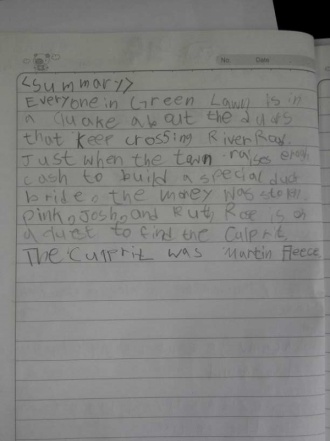 No. Date
<Summary>
Everyone in Green Lawn is in
a quake about the ducks
that keep crossing River Road.
Just when the town raises enough
cash to build a special duck
bride, the money was stolen.
Pink, Josh, and Ruth Rose is on
a quest to find the Culprit.
The Culprit was Martin Fleece